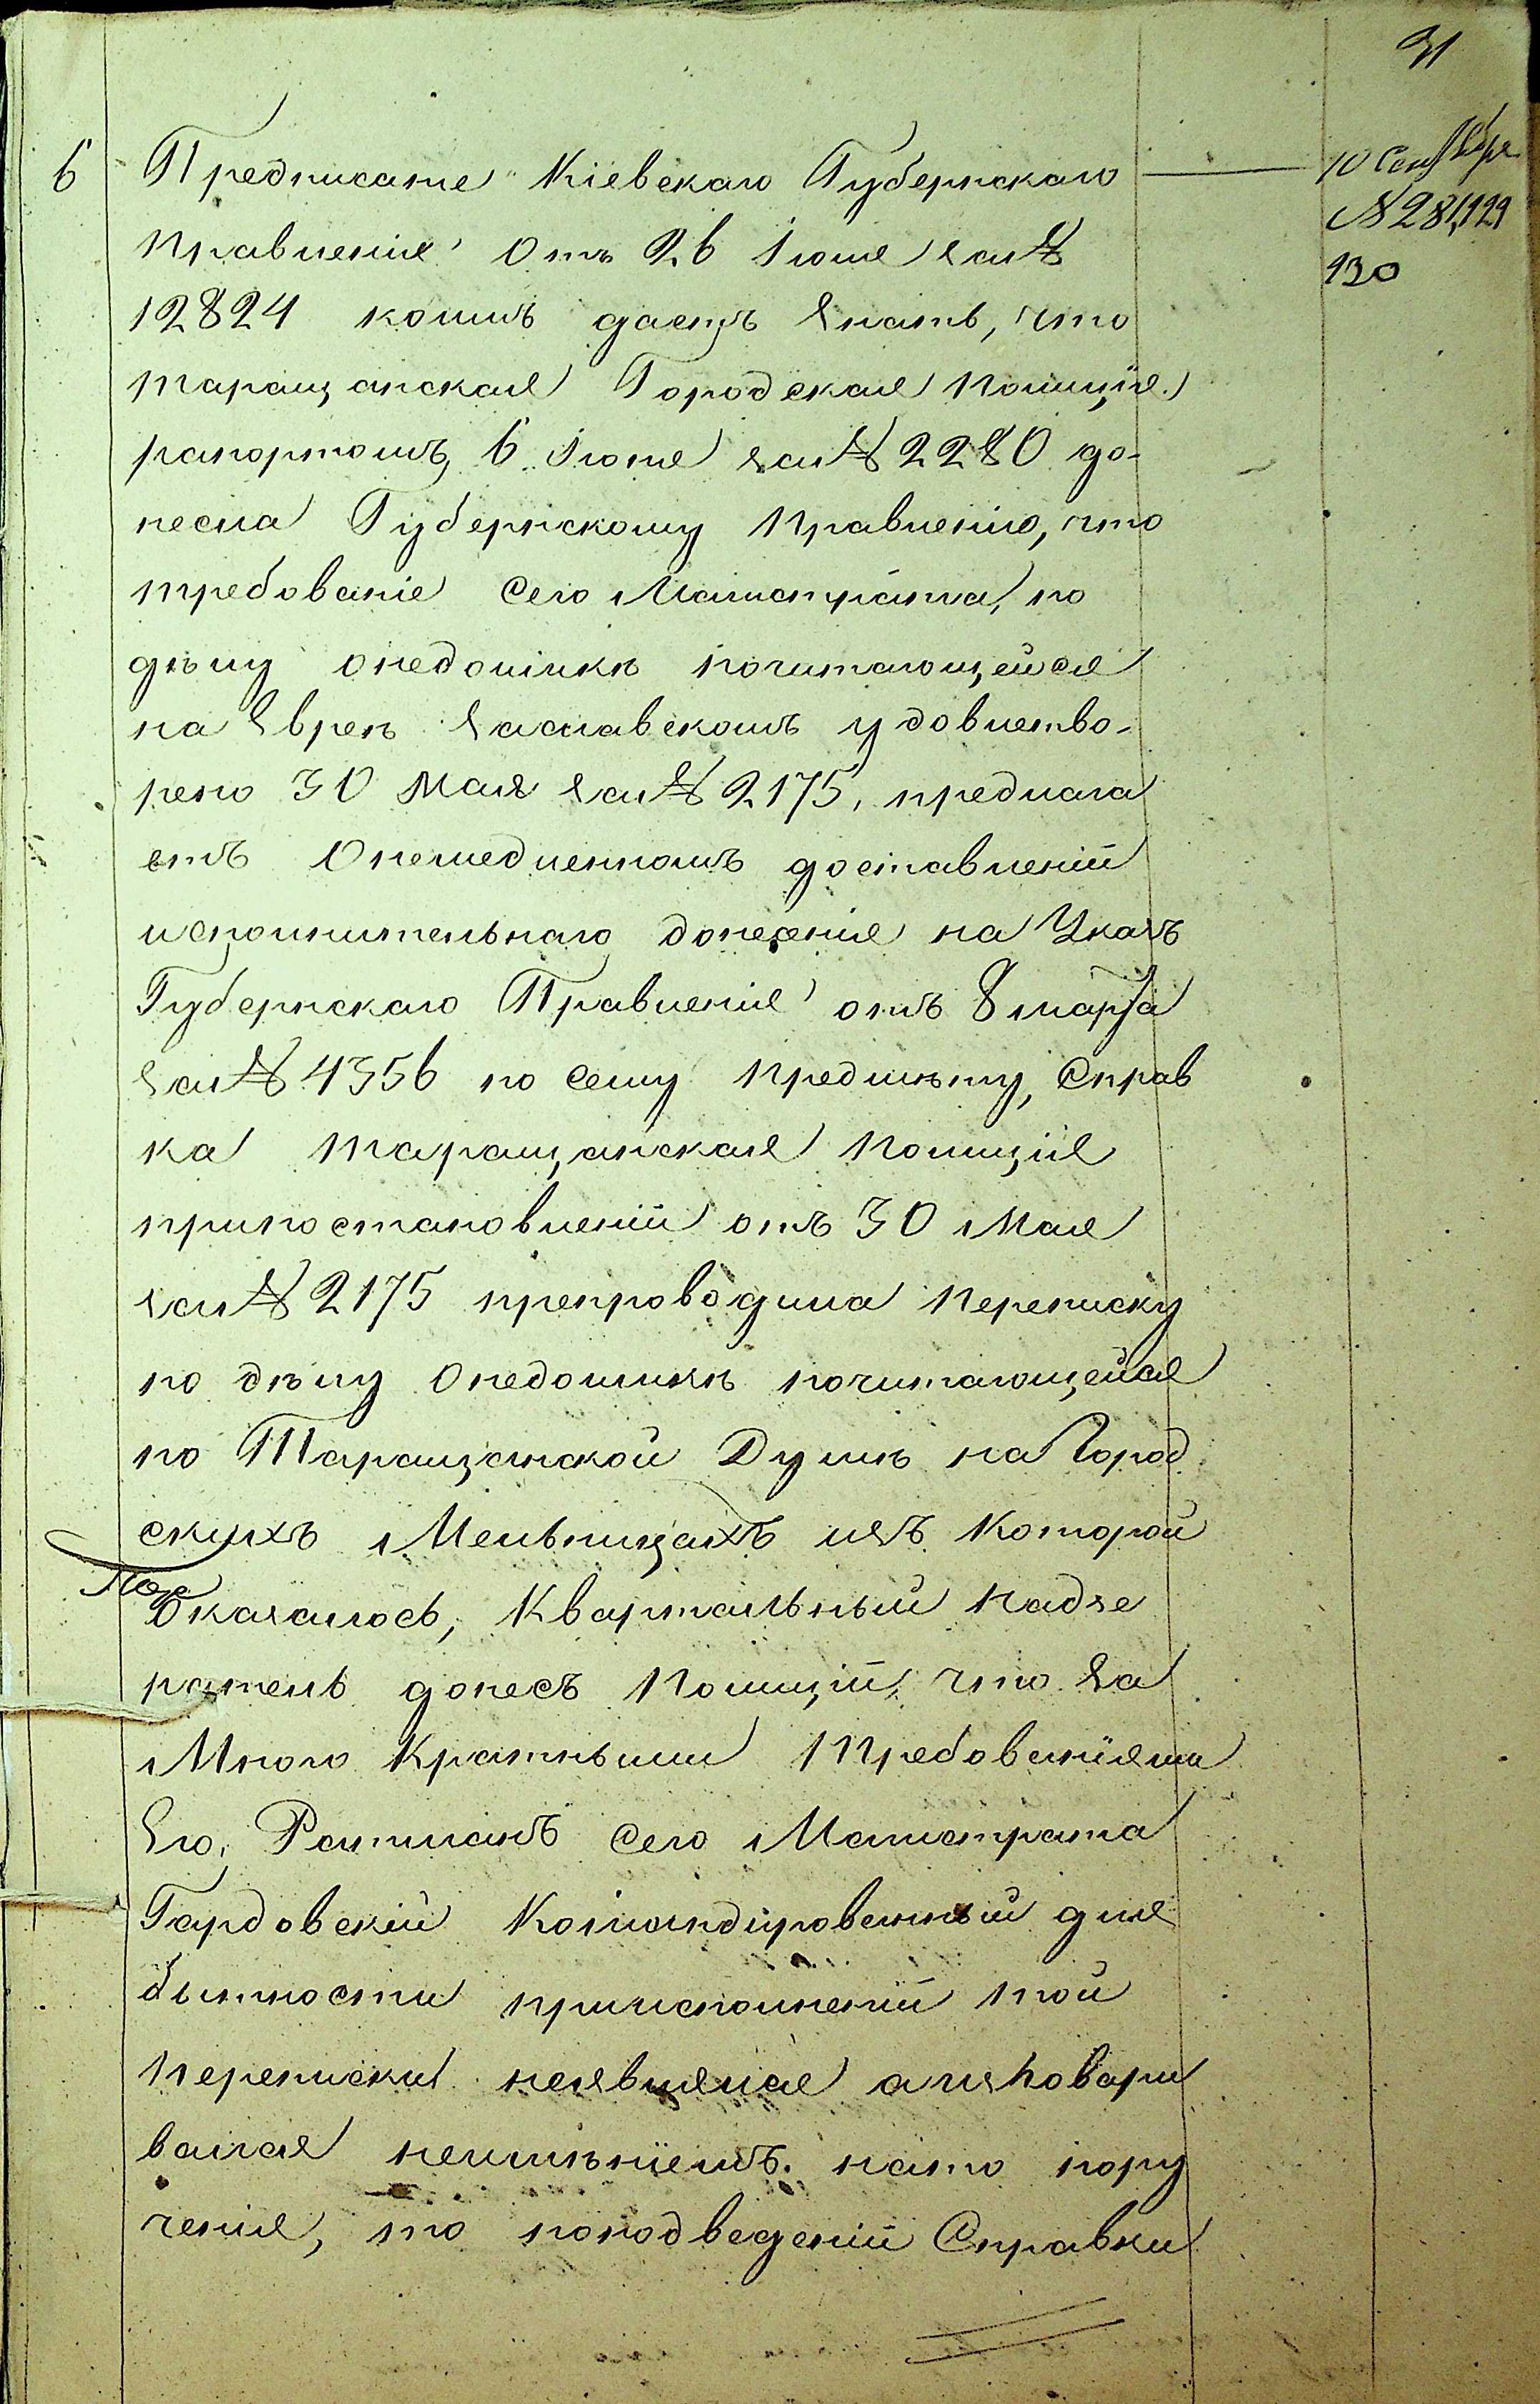 31
6 Предписаніе Кіевскаго Губернскаго
10 Сентября
№ 281,129
130
Правленія отъ 26 Іюня за №
12824 коимъ даетъ знать, что
таращанская Городская Полиція
рапортомъ, 6 Іюня за № 2280 до-
несла Губернскому Правленію, что
требованіе Сего Магистрата, по
дѣлу онедоимкѣ почитающейся
на Евреѣ Заславскомъ удовлетво-
рено 30 Мая за № 2175, предлага
етъ Онемедленномъ доставленіи
исполнительнаго донесенія на Указъ
Губернскаго Правленія отъ 8 марта
за № 4356 по Сему Предмѣту, Справ
ка Таращанская Полиція
припостановленіи отъ 30 Мая
за № 2175 препроводила Переписку
по дѣлу Онедоимкѣ почитающейся
по Таращанской Думѣ на Город
скихъ Мельницахъ изъ Которой
Оказалось, Квартальный Надзе
ратель донесъ Полиціи, что За
Много Кратнѣми Требованіями
Его, Ратманъ Сего Магистрата
Гардовскій Командированный для
бытности приисполненіи той
Переписки неявлялся аизговари
вался неимѣніемъ нато пору
ченія, то поподведеніи Справки